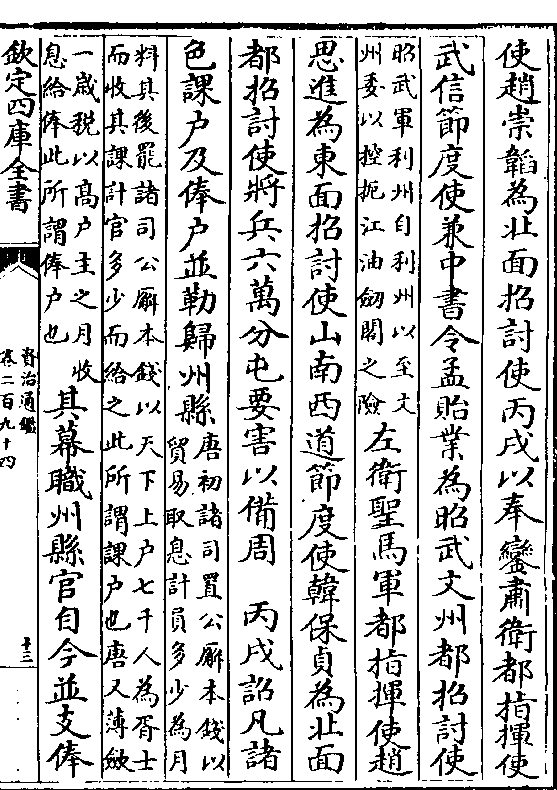 使趙崇韜為北面招討使丙戌以奉鑾肅衛都指揮使
武信節度使兼中書令孟貽業為昭武文州都招討使
昭武軍利州自利州以至文
州委以控扼江油劒閣之險
左衛聖馬軍都指揮使趙
思進為東面招討使山南西道節度使韓保貞為北面
都招討使將兵六萬分屯要害以備周　丙戌詔凡諸
色課户及俸户並勒歸州縣
唐初諸司置公廨本錢以
貿易取息計員多少為月
料其後罷諸司公廨本錢以天下上户七千人為胥士
而收其課計官多少而給之此所謂課户也唐又薄斂
一歳税以髙户主之月收
息給俸此所謂俸户也
其幕職州縣官自今並支俸
欽定四庫全書
資治通鑑
卷二百九十四
十三